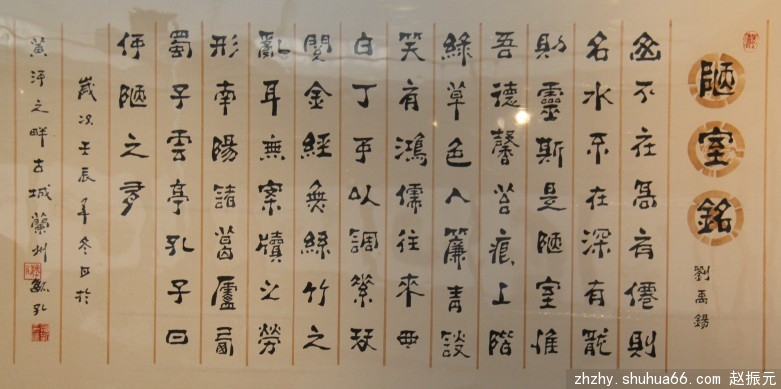 陋室銘
劉禹錫
山不在高有僊則
名水不在深有龍
則靈斯是陋室惟
吾德馨苔痕上階
綠草色入簾青談
笑有鴻儒往來無
白丁可以調素琴
閱金經無絲竹之
亂耳無案牘之勞
形南陽諸葛廬西
蜀子雲亭孔子曰
何陋之有
歲次壬辰年冬月於
黃河之畔古城蘭州
zhzhy.shuhua66.com 赵振元